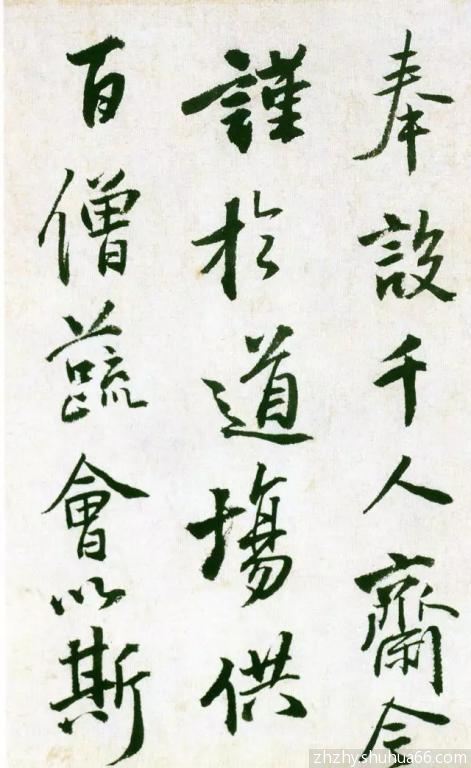 奉設千人齋今
謹於道場供
百僧蔬會以斯
zhzhyshuhua66.com